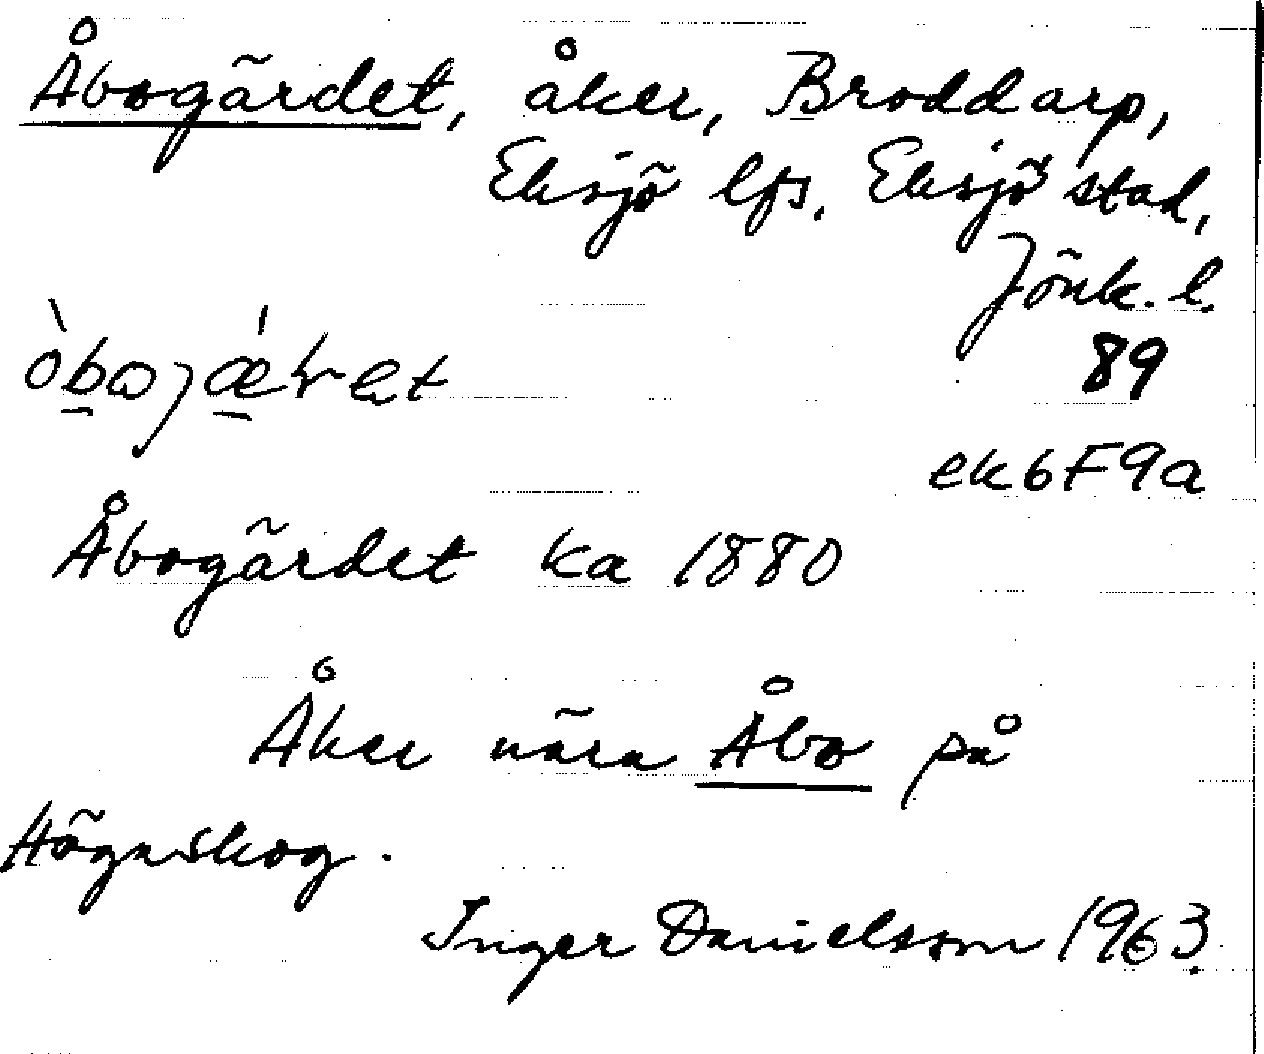 Åbogärdet, åker, Broddarp,
Eksjö lfs. Eksjö stad,
Jönk. l.
89
ek6F9a
Åbogärdet ka 1880
Åker nära Åbo på
Högaskog.
Inger Danielsson 1963.